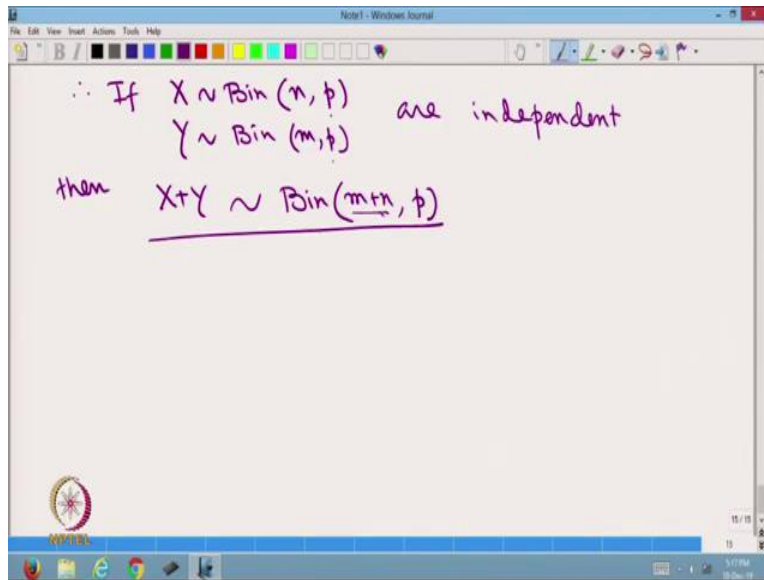 Note1 - Windows Journal
File Edit View Insert Actions Tools Help
∴ If X ~ Bin (n, p)
Y ~ Bin (m, p) are independent
then X+Y ~ Bin (m+n, p)
NPTEL
15/15
5:17 PM